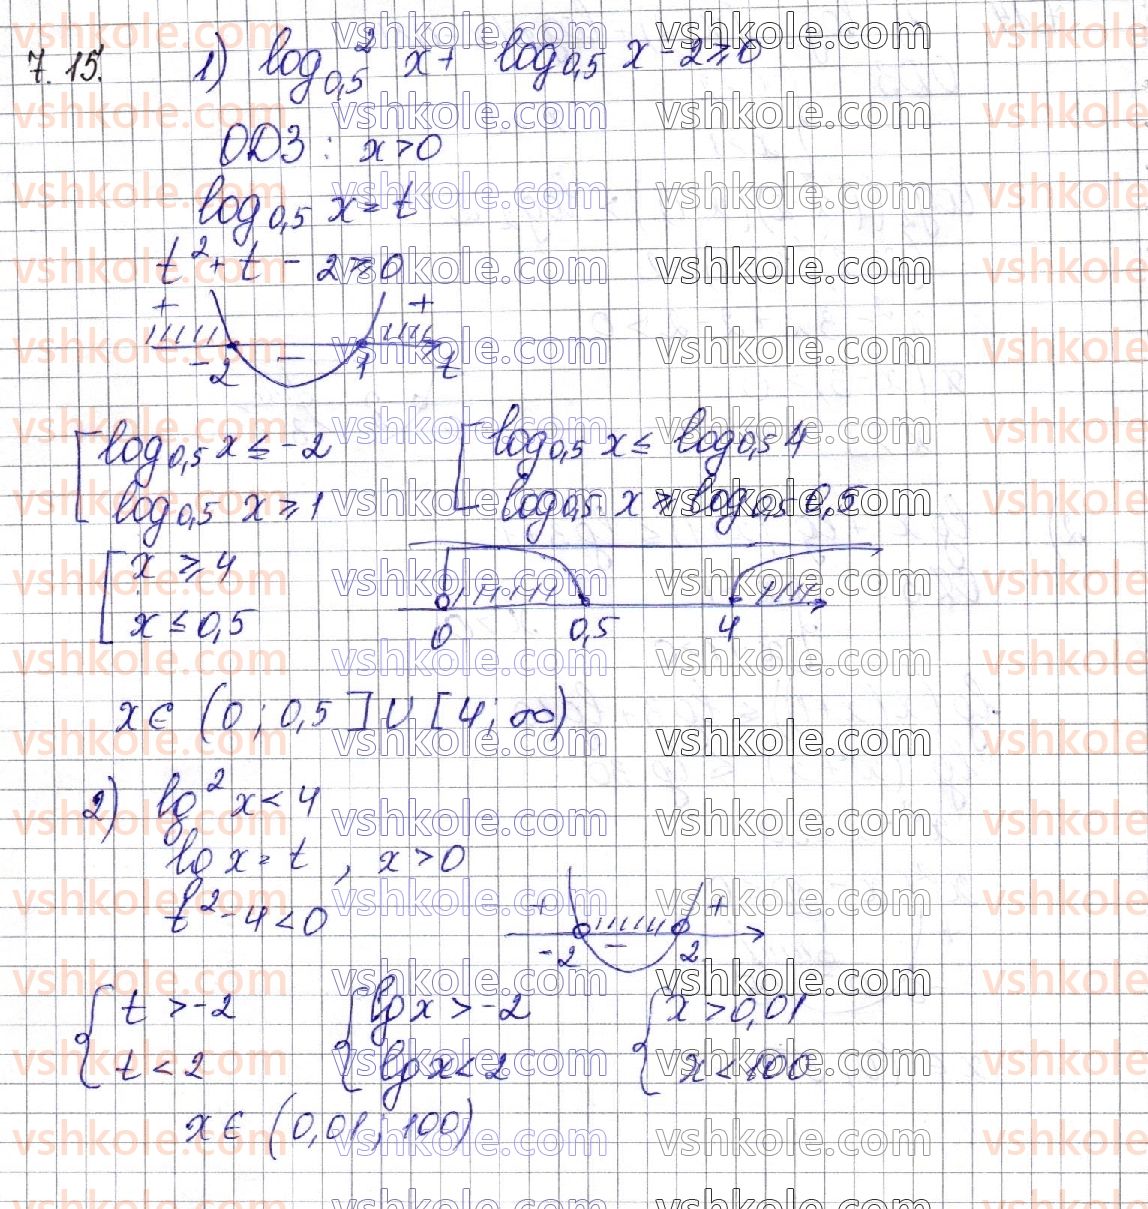 7.15. 1) log²₀,₅ x + log₀,₅ x - 2 ⩾ 0
ОДЗ: x > 0
log₀,₅ x = t
t² + t - 2 ⩾ 0
+ +
-2 - 1 t
[ log₀,₅ x ≤ -2 [ log₀,₅ x ≤ log₀,₅ 4
log₀,₅ x ⩾ 1 log₀,₅ x ⩾ log₀,₅ 0,5
[ x ⩾ 4
x ≤ 0,5
0 0,5 4
x ∈ (0; 0,5] ∪ [4; ∞)
2) lg² x < 4
lg x = t, x > 0
t² - 4 < 0
+ +
-2 - 2
{ t > -2 { lg x > -2 { x > 0,01
t < 2 lg x < 2 x < 100
x ∈ (0,01; 100)
vshkole.com